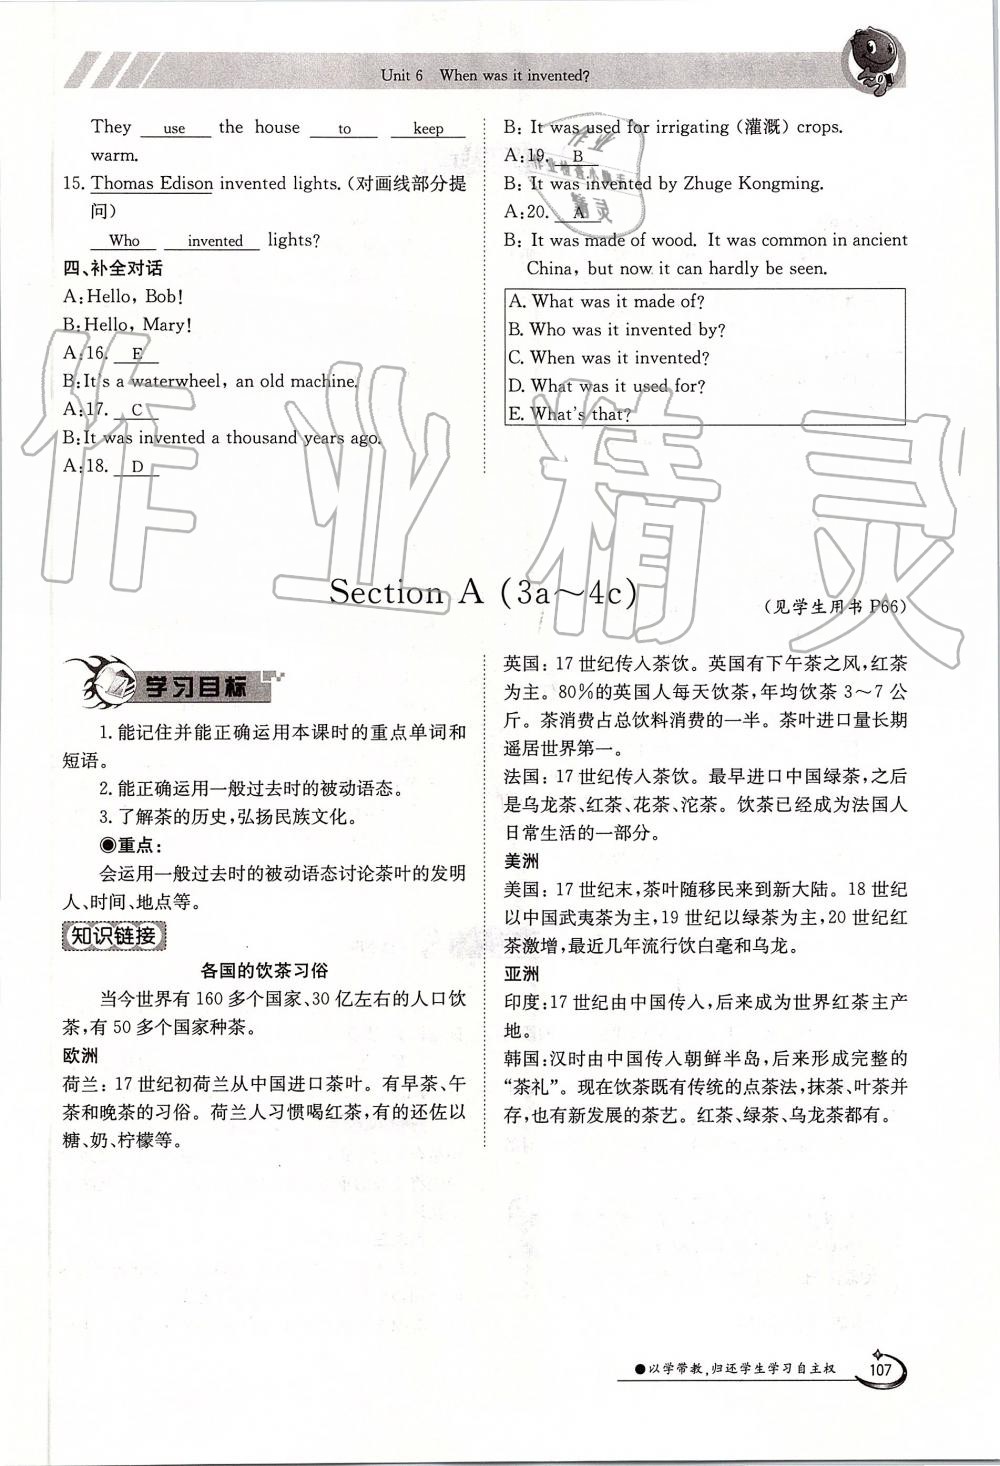 Unit 6 When was it invented?
They use the house to keep
warm.
15. Thomas Edison invented lights.(对画线部分提
问)
Who invented lights?
四、补全对话
A:Hello, Bob!
B:Hello, Mary!
A:16. E
B:It's a waterwheel, an old machine.
A:17. C
B:It was invented a thousand years ago.
A:18. D
B: It was used for irrigating (灌溉) crops.
A:19. B
B: It was invented by Zhuge Kongming.
A:20. A
B: It was made of wood. It was common in ancient
China, but now it can hardly be seen.
A. What was it made of?
B. Who was it invented by?
C. When was it invented?
D. What was it used for?
E. What's that?
作业精灵
Section A (3a～4c)
(见学生用书 P66)
学习目标
1. 能记住并能正确运用本课时的重点单词和
短语。
2. 能正确运用一般过去时的被动语态。
3. 了解茶的历史,弘扬民族文化。
◉重点:
会运用一般过去时的被动语态讨论茶叶的发明
人、时间、地点等。
知识链接
各国的饮茶习俗
当今世界有 160 多个国家、30 亿左右的人口饮
茶,有 50 多个国家种茶。
欧洲
荷兰: 17 世纪初荷兰从中国进口茶叶。有早茶、午
茶和晚茶的习俗。荷兰人习惯喝红茶,有的还佐以
糖、奶、柠檬等。
英国: 17 世纪传入茶饮。英国有下午茶之风,红茶
为主。80%的英国人每天饮茶,年均饮茶 3～7 公
斤。茶消费占总饮料消费的一半。茶叶进口量长期
遥居世界第一。
法国: 17 世纪传入茶饮。最早进口中国绿茶,之后
是乌龙茶、红茶、花茶、沱茶。饮茶已经成为法国人
日常生活的一部分。
美洲
美国: 17 世纪末,茶叶随移民来到新大陆。18 世纪
以中国武夷茶为主,19 世纪以绿茶为主,20 世纪红
茶激增,最近几年流行饮白毫和乌龙。
亚洲
印度:17 世纪由中国传入,后来成为世界红茶主产
地。
韩国:汉时由中国传入朝鲜半岛,后来形成完整的
“茶礼”。现在饮茶既有传统的点茶法,抹茶、叶茶并
存,也有新发展的茶艺。红茶、绿茶、乌龙茶都有。
●以学带教,归还学生学习自主权
107